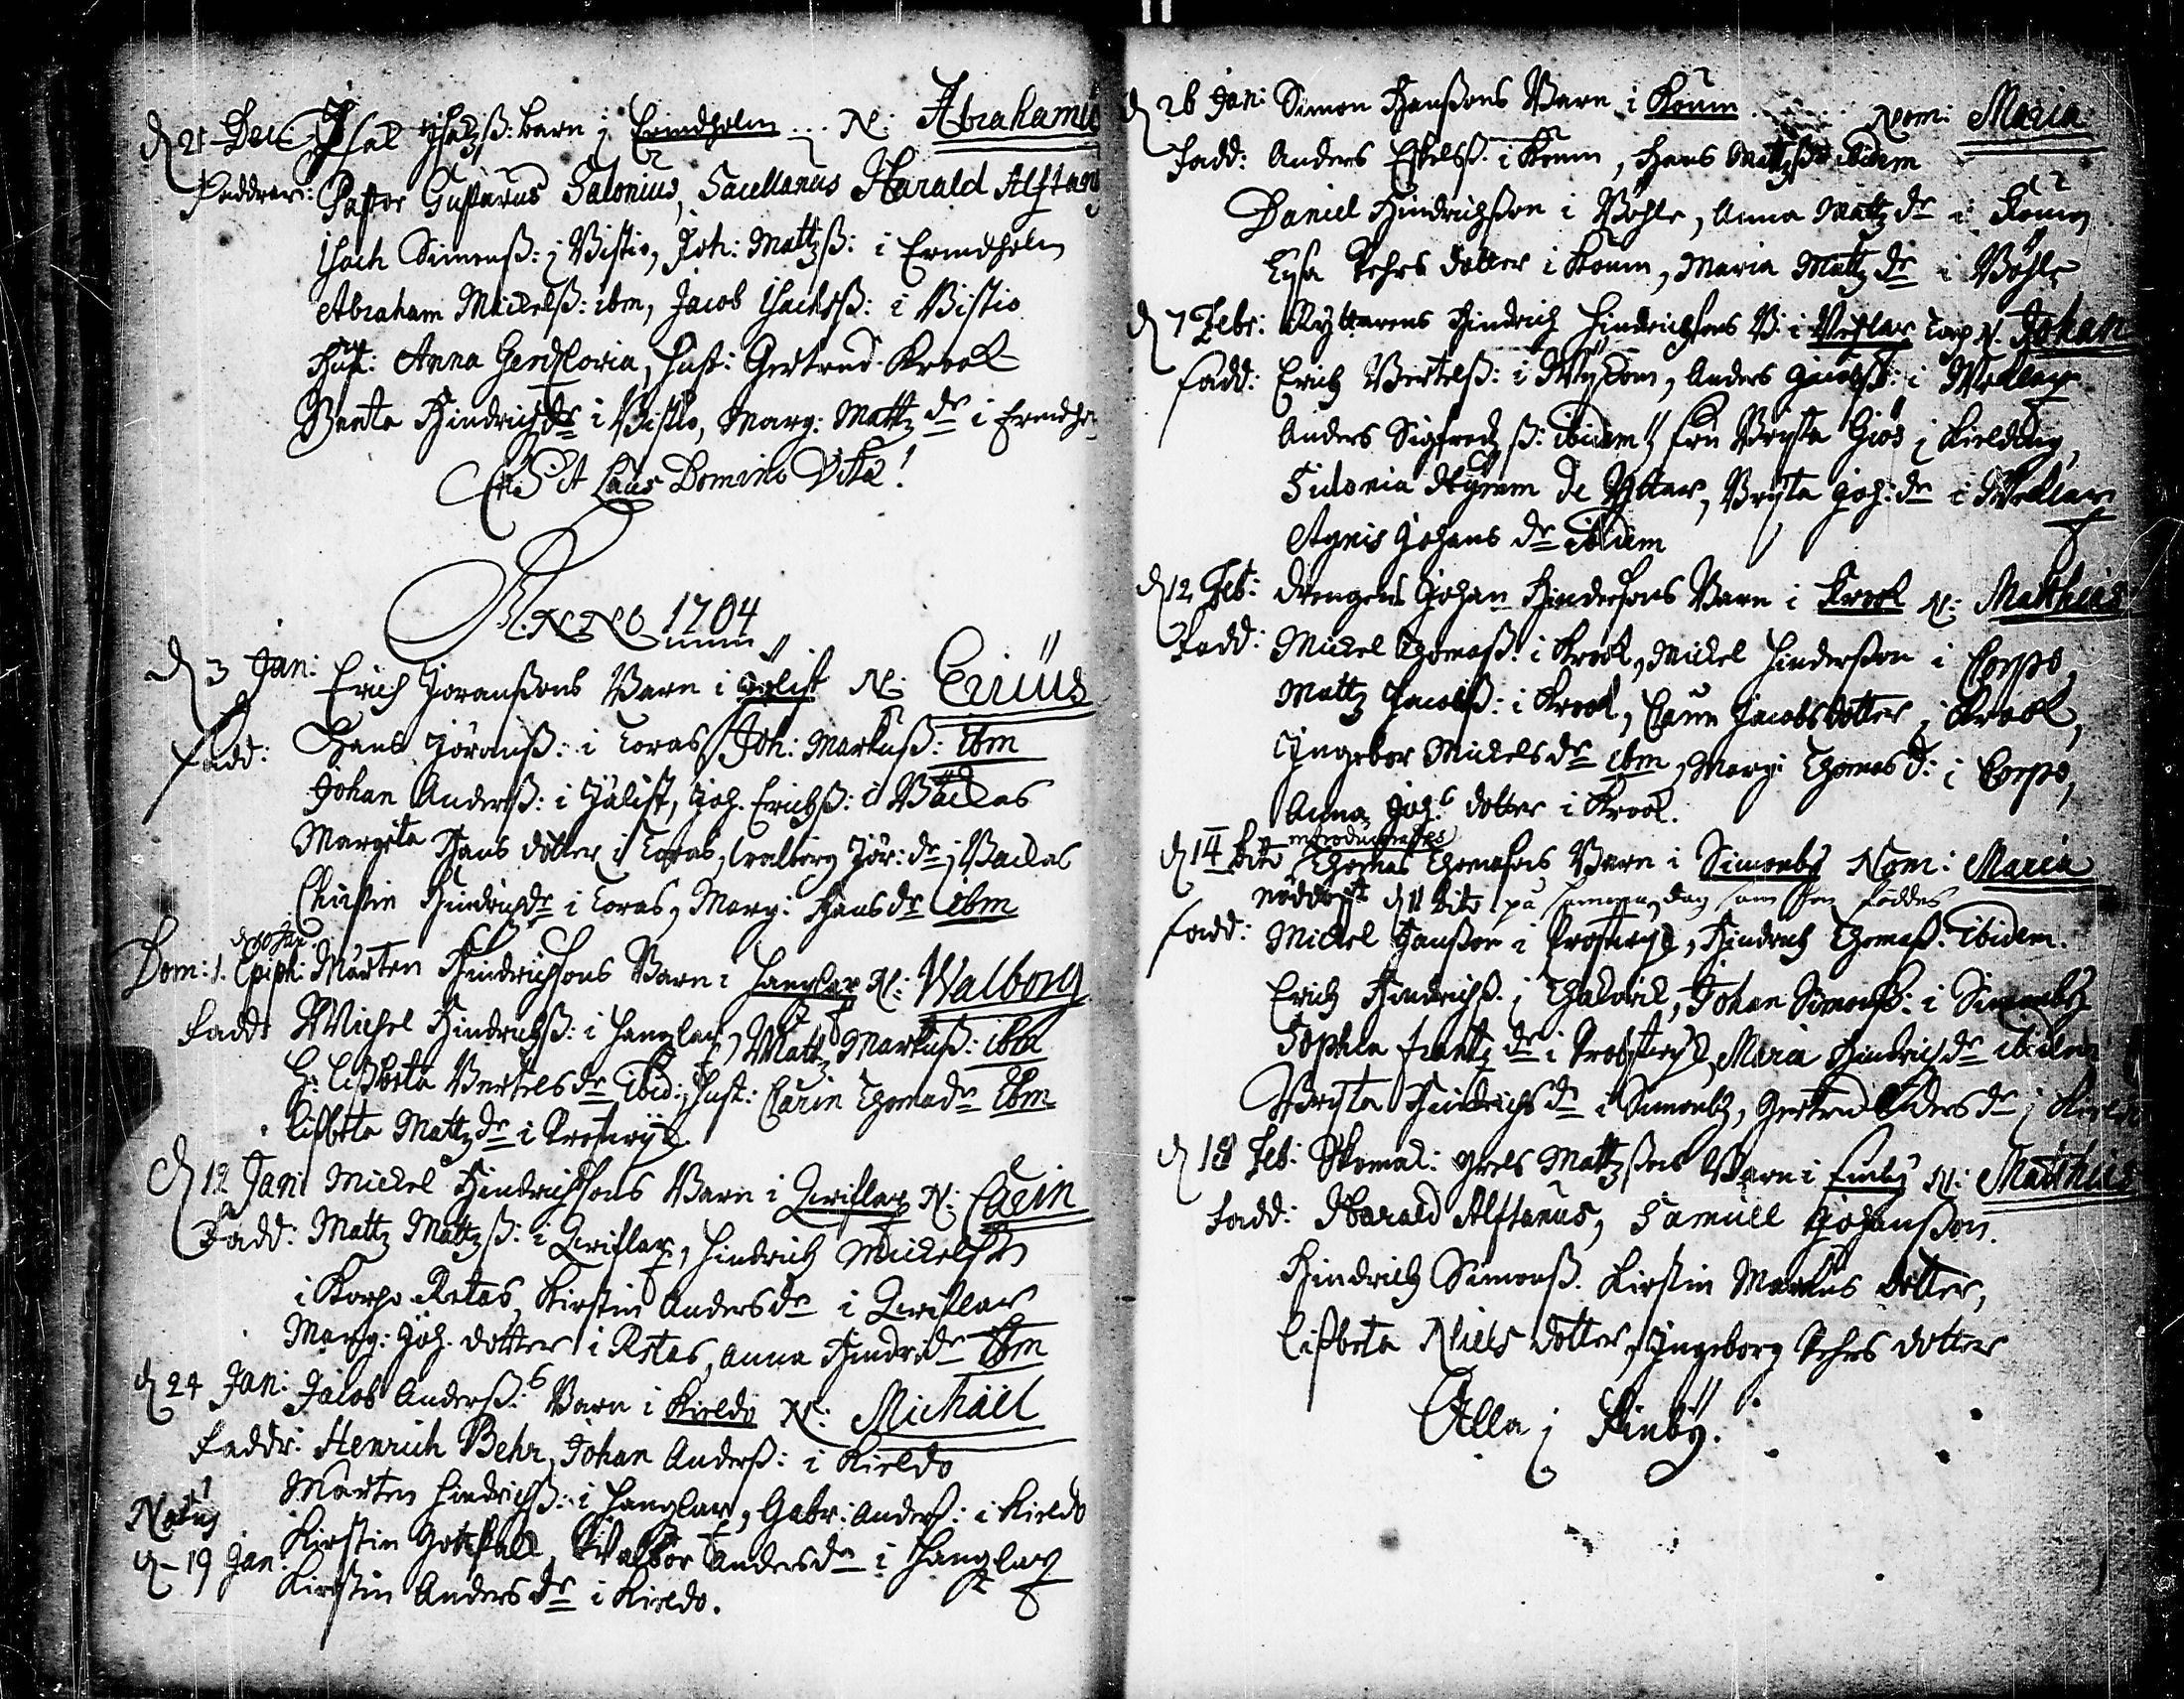 d 21 Dec: Isac Isacsß: barn i Ermdholm ... N: Abrahamus
Faddrar: Pastor Gustavus Salonius, Sacellanus Harald Alftan
Isach Simonß: i Bistio, Joh: Mattzß: i Ermdholm
Abraham Mickelß: ibm, Jacob Isachsß: i Bistio
Hust: Anna Gendsloria, Hust: Gertrud Krook
Benta Hindrichdr i Bistio, Marg: Mattz dr i Ermdho
Sit Laus Domino Vita!
Anno 1704
d 3 Jan: Erich Joranßons Barn i Jälist N: Ericus
Fadd: Hans Jöranß: i Toras, Joh: Markuß: ibm
Johan Anderß: i Jälist, Joh. Erichß: i Backas
Margeta Hans dotter i Toras, Walborg Jör: dr i Backas
Christin Hindrichdr i Toras, Marg: Hansdr ibm
d 10 Jan
Dom: 1. Epiph: Mårten Hindrichsons Barn i Hanglax N: Walborg
Fadd: Michel Hindrichß: i Hanglax, Matz Markuß: ibm
H: Lisbeta Bertelsdr Ibid:, Hust: Carin Thomadr Ibm
Lisbeta Mattzdr i Prostwijk
d 12 Jan: Mickel Hindrichsons Barn i Qwiflax N: Carin
Fadd: Mattz Mattzß: i Qwiflax, Hindrich Mickelß
i Korpo Retas, Kirstin Andersdr i Qwiflax
Marg: Joh. dotter i Retas, Anna Hindr:dr Ibm
d 24 Jan: Jacob Anderß: Barn i Kirldo N: Michaël
Faddr: Henrich Behr, Johan Anderß: i Kirldo
Mårten Hindrichß: i Hanglax, Gabr: Anderß: i Kirldo
Natus Kirstin Gottskalk, Walbor Andersdr i Hanglax
d 19 Jan: Kirstin Andersdr i Kirldo.
d 26 Jan: Simon Hanßons Barn i Koum Nom: Maria
Fadd: Anders Eskelß. i Koum, Hans Mattzß ibidem
Daniel Hindrichßon i Böhle, Anna Mattz dr i Koum
Lysa Pehrs dotter i Koum, Maria Mattz dr i Böhle
d 7 Febr: Ryttarens Hindrich Hindrichsons B: i Wexlax Torp N. Johan
Fadd: Erich Bertelß: i Myldom, Anders Jacobß: i Wexlax
Anders Sigfredzß: ibidem, fru Bryta Giös i Kieldting
Sidonia Ryttar, Bryta Joh: dr i Wexlax
Agnis Johans dr Ibidem
d 12 Feb: Drengens Johan Hindersons Barn i Krook N: Matthias
Fadd: Mickel Thomaß: i Krook, Mickel Hinderßon i Corpo
Mattz Jacobß: i Krook, Carin Jacobsdotter i Krook,
Ingebor Mickelsdr ibm, Marg: Thomas d: i Corpo,
Anna Joh: dotter i Krook.
introducerades
d 14 dito Thomas Thomasons Barn i Simonby Nom: Maria
nöddöpt d 11 dito på samma dag som hon föddes
Fadd: Mickel Hanßon i Prostwijk, Hindrich Thomaß: ibidem.
Erich Hindrichß. i, Johan Simonß: i Simonby
Sophia Frantz dr i Prostwijk, Maria Hindrichdr ibidem
Bryta Hindrichs dr i Simonby, Gertrud Andersdr i Kirldo
d 18 Feb: Skomak: Grels Mattzßons Barn i Finby N: Matthias
Fadd: Harald Alftanus, Samuel Johanßon.
Hindrich Simonß. Kirstin Markus dotter,
Lisbeta Niels dotter, Ingeborg Pehrs dotter
Alla i Finby.